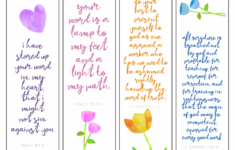 i have
stored up
your word
in my
heart,
that i
might not
sin against
you.
your
word is a
lamp to
my feet
and a
light to
my path.
Do your
best to
present
yourself to
God as one
approved, a
worker who
has no need
to be
ashamed,
rightly
handling the
word of truth.
all scripture is
breathed out
by god and
profitable for
teaching, for
reproof, for
correction,
and for training
in righteousness,
that the man
of god may be
complete,
equipped for
every good work.